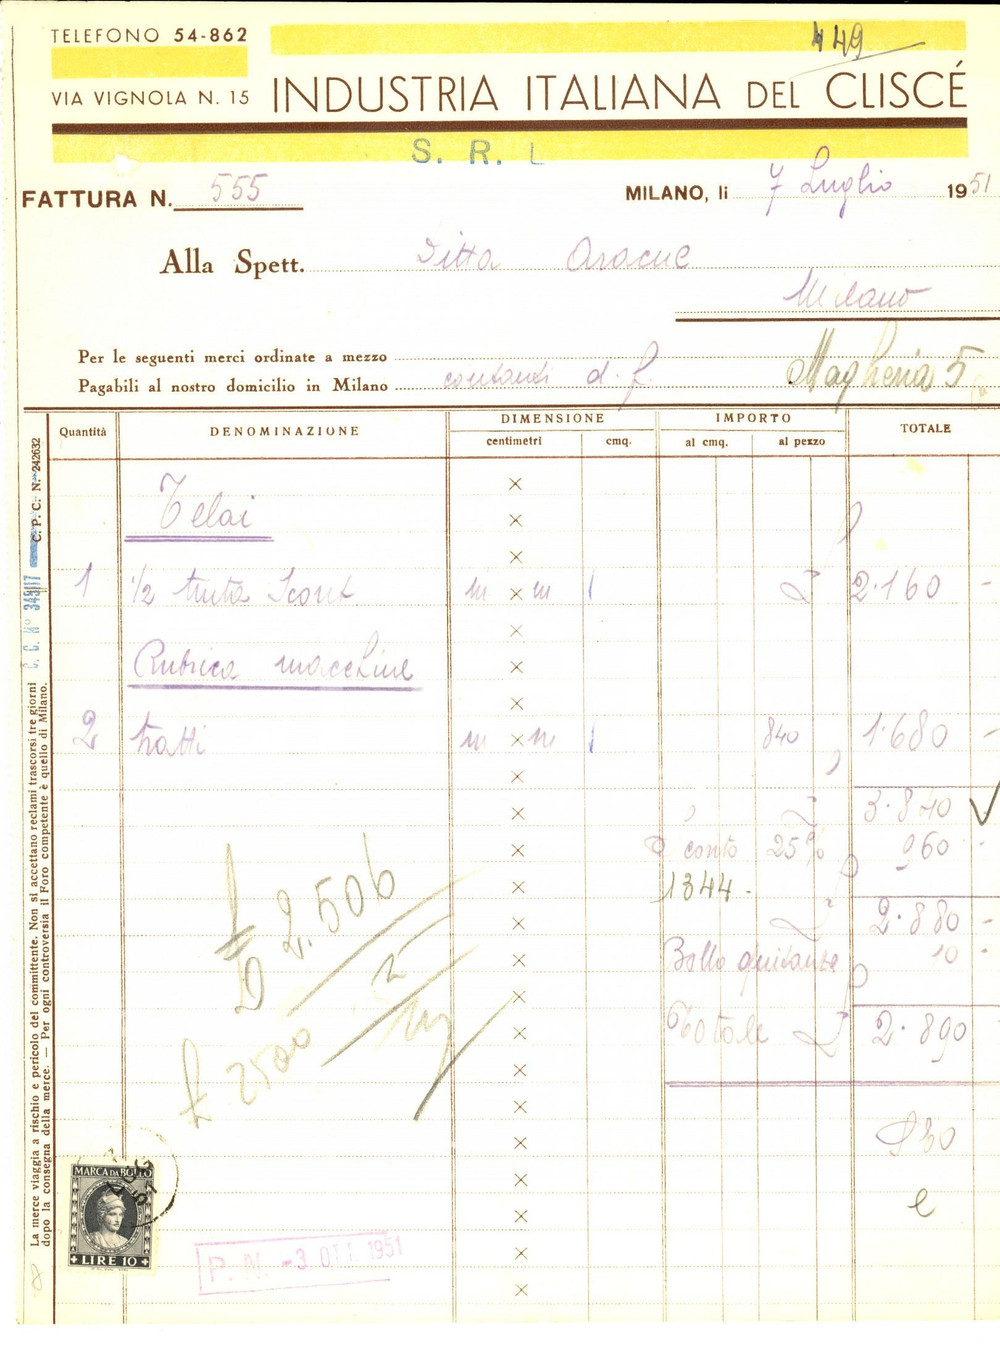 TELEFONO 54-862
449
VIA VIGNOLA N. 15
INDUSTRIA ITALIANA DEL CLISCÉ
S. R. L
FATTURA N. 555
MILANO, li 7 Luglio 1951
Alla Spett. Ditta
Milano
Per le seguenti merci ordinate a mezzo
Pagabili al nostro domicilio in Milano contanti d. f.
5
Quantità DENOMINAZIONE DIMENSIONE centimetri cmq. IMPORTO al cmq. al pezzo TOTALE
Telai
1 1/2 tinta m × m 2.160 -
Rubrica macchine
2 tratti m × m 840 1.680 -
3.840
conto 25% 960
1344.-
2.880 -
Bollo quitanza 10 -
Totale 2.890
£ 2.506
£ 2500
MARCA DA BOLLO
LIRE 10
P. N. -3 OTT. 1951
C. P. C. N. 242632
C. C. N° 348117
La merce viaggia a rischio e pericolo del committente. Non si accettano reclami trascorsi tre giorni
dopo la consegna della merce. — Per ogni controversia il Foro competente è quello di Milano.